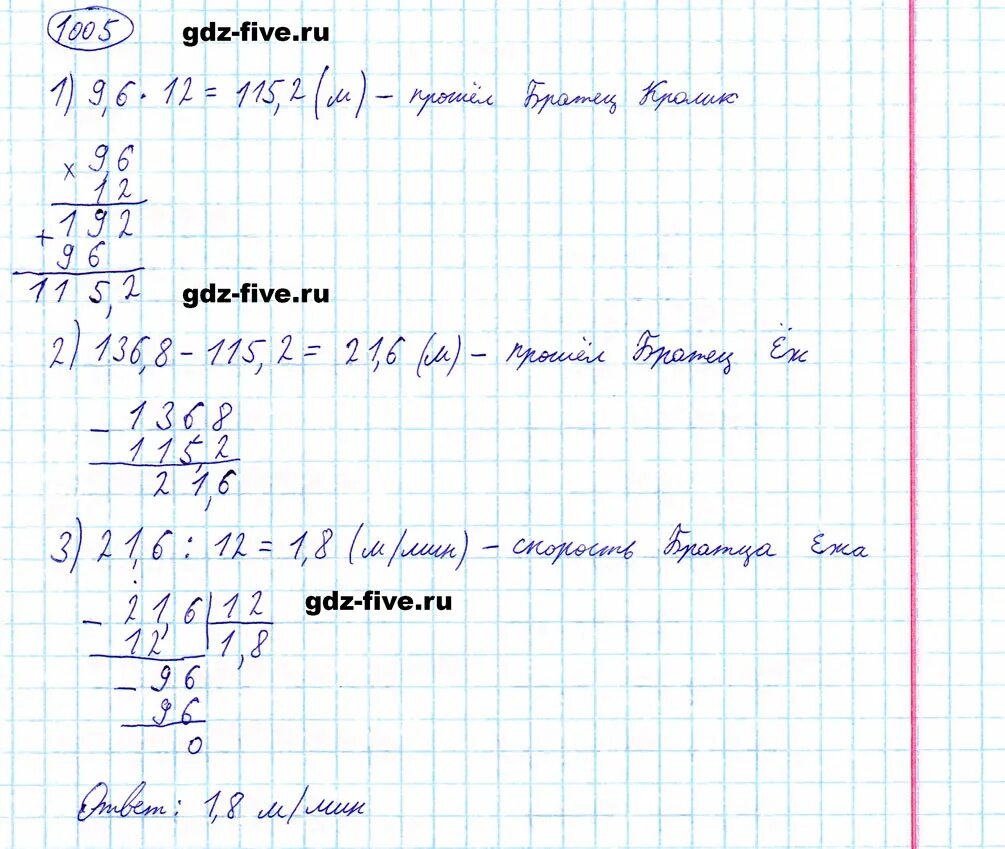 1005 gdz-five.ru
1) 9,6 · 12 = 115,2 (м) – прошёл Братец Кролик
× 9,6
12
+ 192
96
115,2 gdz-five.ru
2) 136,8 – 115,2 = 21,6 (м) – прошёл Братец Ёж
– 136 8
115,2
21,6
3) 21,6 : 12 = 1,8 (м/мин) – скорость Братца Ежа
– 21,6 | 12 gdz-five.ru
12 | 1,8
– 96
96
0
Ответ: 1,8 м/мин